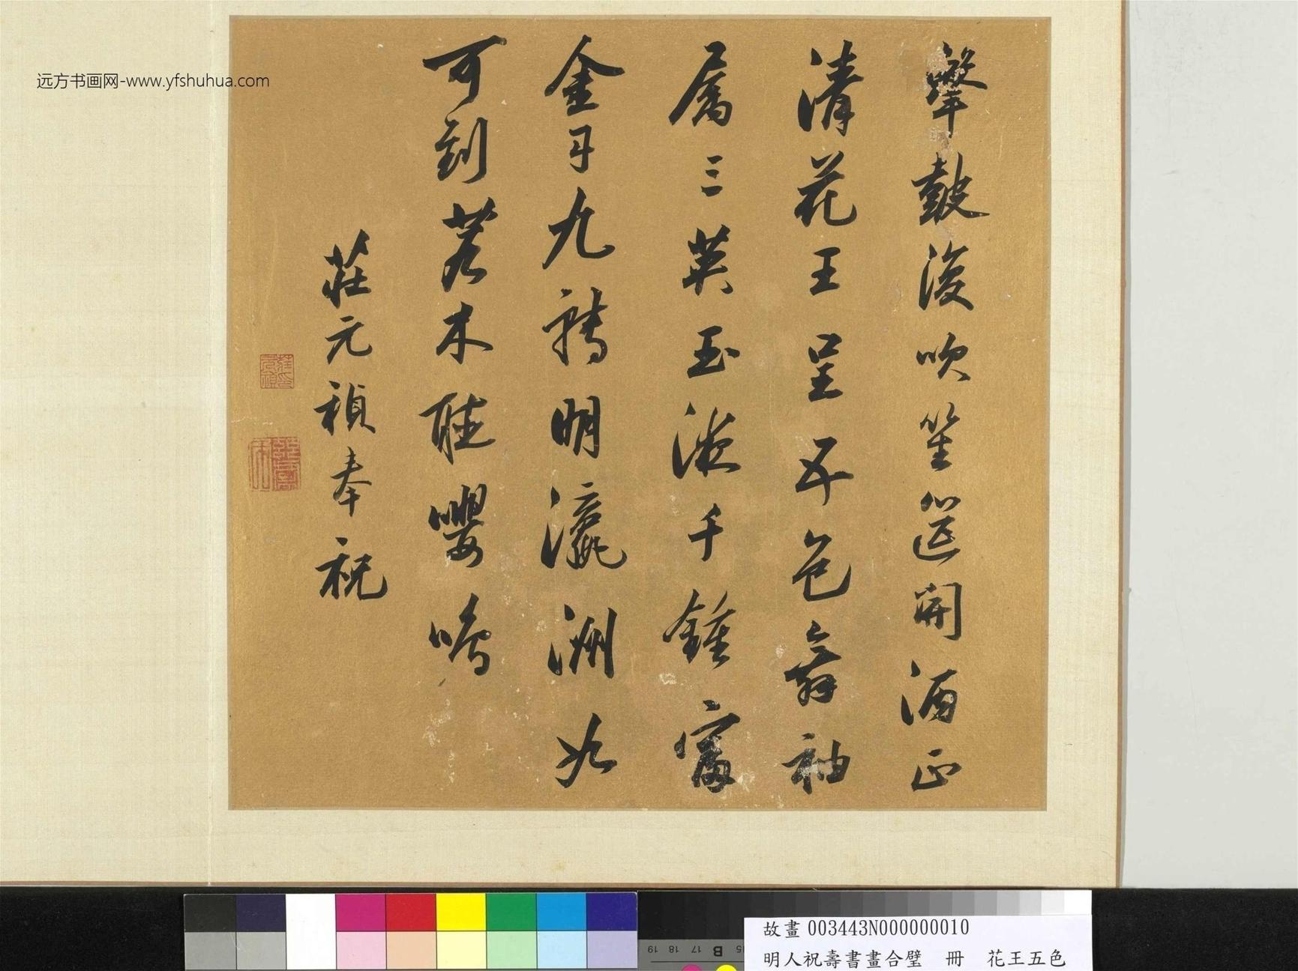 鼓後吹笙簇開酒正
清花王呈五色裔袖
屬三英玉液千鍾富
金丹九轉明瀛洲如
可到若木聽嚶鳴
莊元禎奉祝
远方书画网-www.yfshuhua.com
故畫 003443N000000010
明人祝壽書畫合璧 冊 花王五色
15 16 17 18 19
B